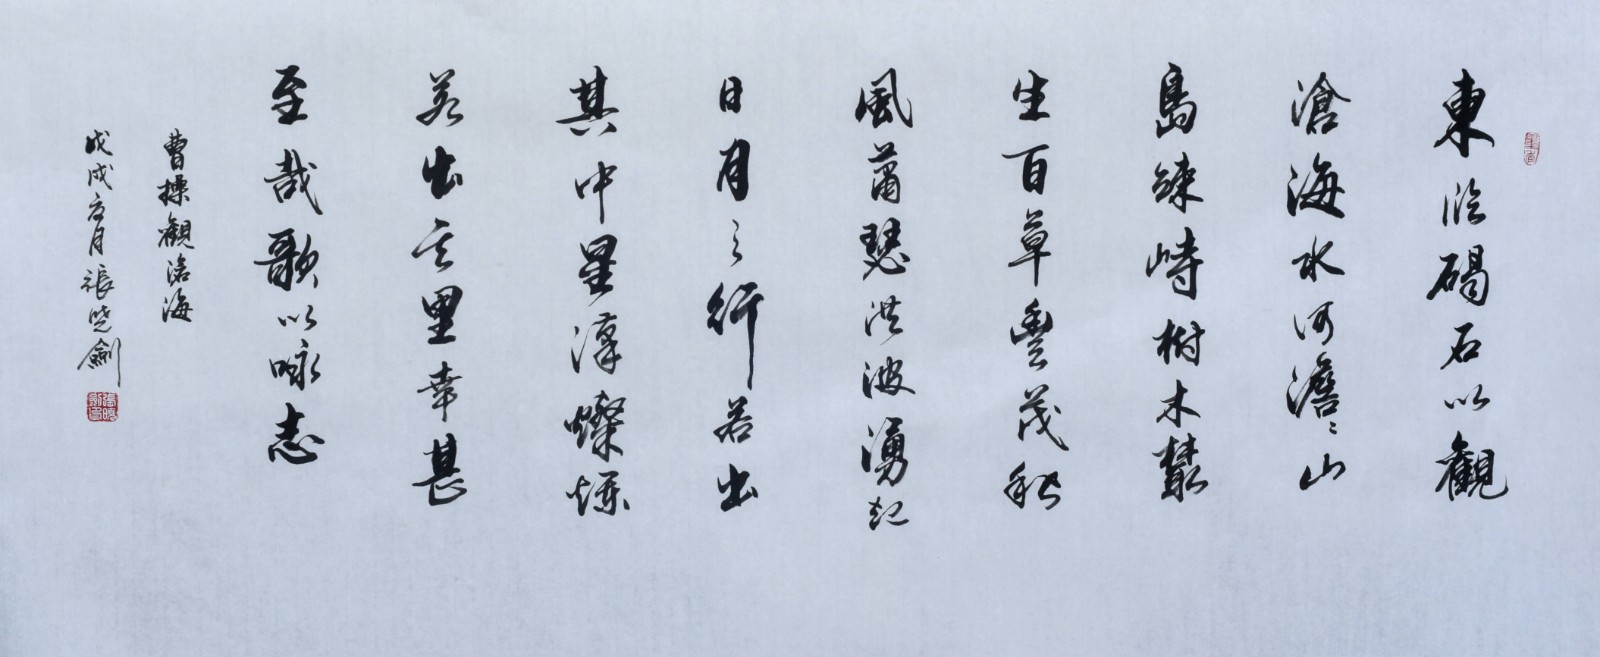 東臨碣石以觀
滄海水何澹〻山
島竦峙樹木叢
生百草豐茂秋
風蕭瑟洪波湧起
日月之行若出
其中星漢燦爛
若出其里幸甚
至哉歌以咏志
曹操觀滄海
戊戌月張曉劍